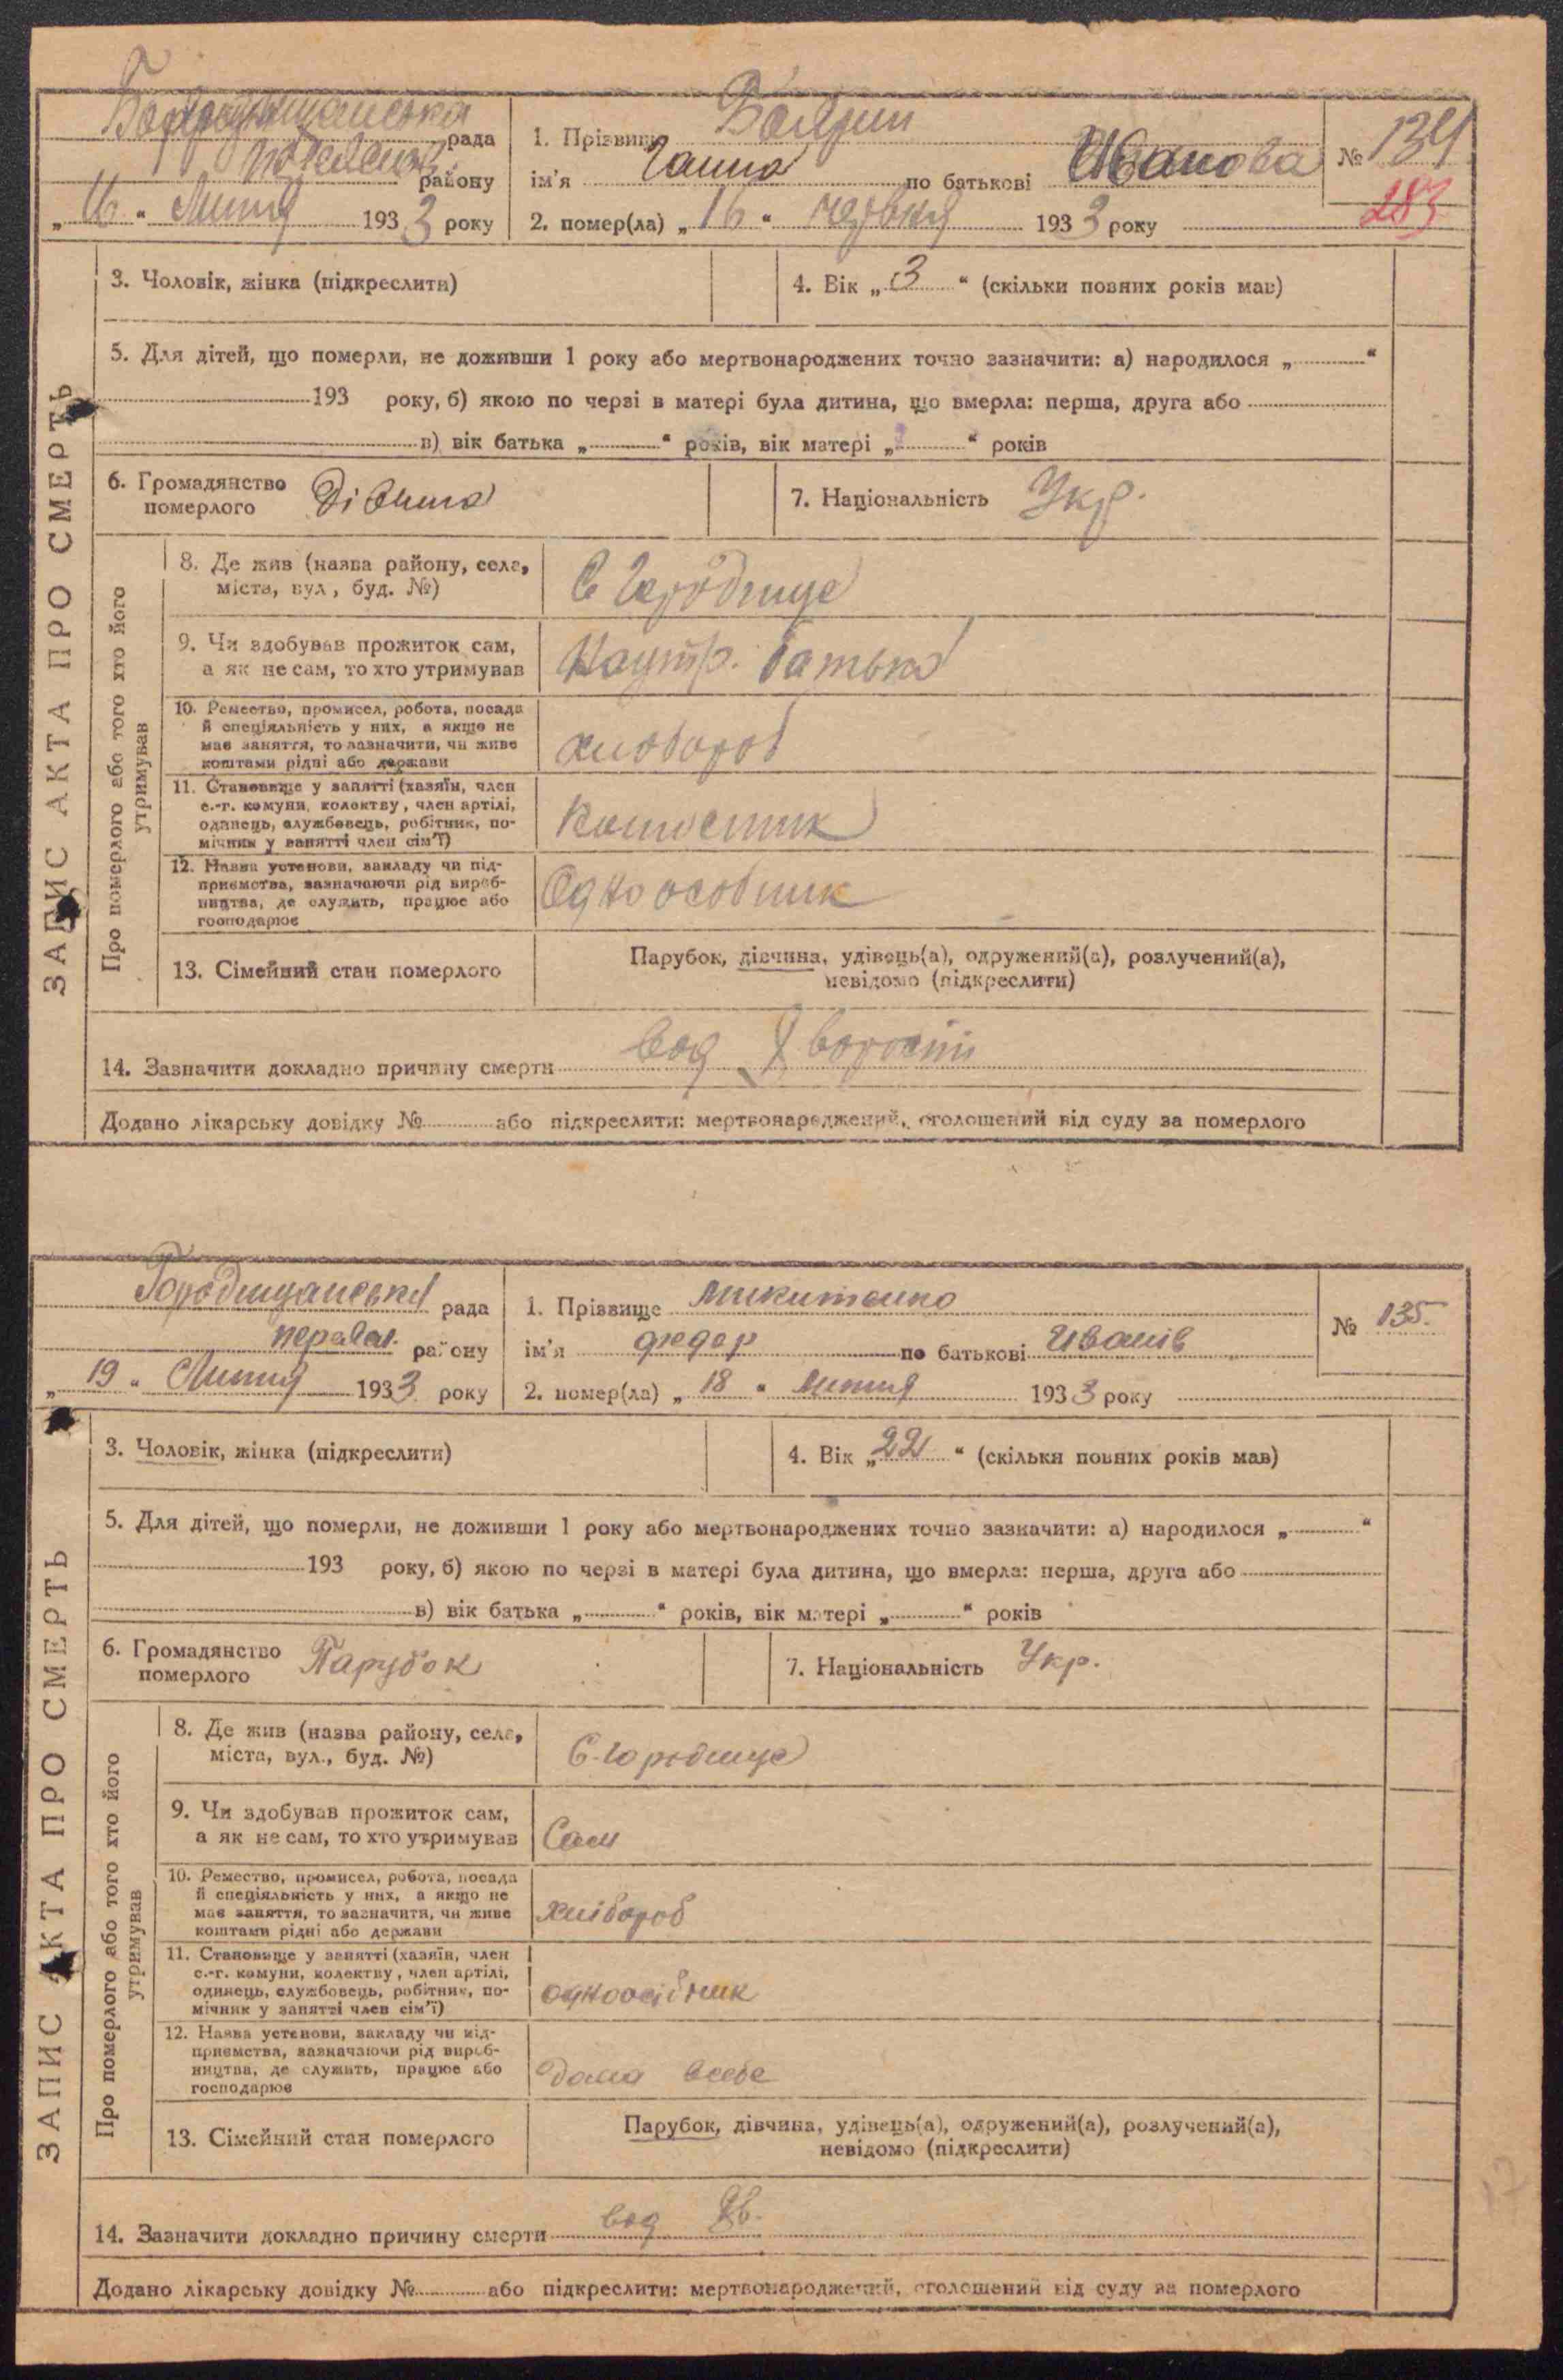 рада
1. Прізвище Боярин
району
ім'я Ганна по батькові Иванова
№ 134
283
„ 16 “ Липня 1933 року
2. помер(ла) „ 16 “ червня 1933 року
3. Чоловік, жінка (підкреслити)
4. Вік „ 3 “ (скільки повних років мав)
5. Для дітей, що померли, не доживши 1 року або мертвонароджених точно зазначити: а) народилося „ “
193 року, б) якою по черзі в матері була дитина, що вмерла: перша, друга або
в) вік батька „ “ років, вік матері „ “ років
6. Громадянство померлого Дівчина
7. Національність Укр.
ЗАПИС АКТА ПРО СМЕРТЬ
Про померлого або того хто його утримував
8. Де жив (назва району, села,
міста, вул, буд. №)
С Городище
9. Чи здобував прожиток сам,
а як не сам, то хто утримував
батько
10. Ремество, промисел, робота, посада
й спеціяльність у них, а якщо не
має заняття, то зазначити, чи живе
коштами рідні або держави
хлібороб
11. Становище у занятті (хазяїн, член
с.-г. комуни, колективу, член артілі,
одинець, службовець, робітник, по-
мічник у занятті член сім'ї)
12. Назва установи, закладу чи під-
приємства, зазначаючи рід вироб-
ництва, де служить, працює або
господарює
Одноособник
13. Сімейний стан померлого
Парубок, дівчина, удівець(а), одружений(а), розлучений(а),
невідомо (підкреслити)
14. Зазначити докладно причину смерти
Додано лікарську довідку № або підкреслити: мертвонароджений, оголошений від суду за померлого
Городищанська рада
1. Прізвище Микитенко
№ 135.
району
ім'я Федор по батькові Иванів
„ 19 “ Липня 1933 року
2. помер(ла) „ 18 “ Липня 1933 року
3. Чоловік, жінка (підкреслити)
4. Вік „ 22 “ (скільки повних років мав)
5. Для дітей, що померли, не доживши 1 року або мертвонароджених точно зазначити: а) народилося „ “
193 року, б) якою по черзі в матері була дитина, що вмерла: перша, друга або
в) вік батька „ “ років, вік матері „ “ років
6. Громадянство померлого Парубок
7. Національність Укр.
ЗАПИС АКТА ПРО СМЕРТЬ
Про померлого або того хто його утримував
8. Де жив (назва району, села,
міста, вул., буд. №)
С. Городище
9. Чи здобував прожиток сам,
а як не сам, то хто утримував
Сам
10. Ремество, промисел, робота, посада
й спеціяльність у них, а якщо не
має заняття, то зазначити, чи живе
коштами рідні або держави
хлібороб
11. Становище у занятті (хазяїн, член
с.-г. комуни, колективу, член артілі,
одинець, службовець, робітник, по-
мічник у занятті член сім'ї)
одноосібник
12. Назва установи, закладу чи під-
приємства, зазначаючи рід вироб-
ництва, де служить, працює або
господарює
дома
13. Сімейний стан померлого
Парубок, дівчина, удівець(а), одружений(а), розлучений(а),
невідомо (підкреслити)
14. Зазначити докладно причину смерти
Додано лікарську довідку № або підкреслити: мертвонароджений, оголошений від суду за померлого
17